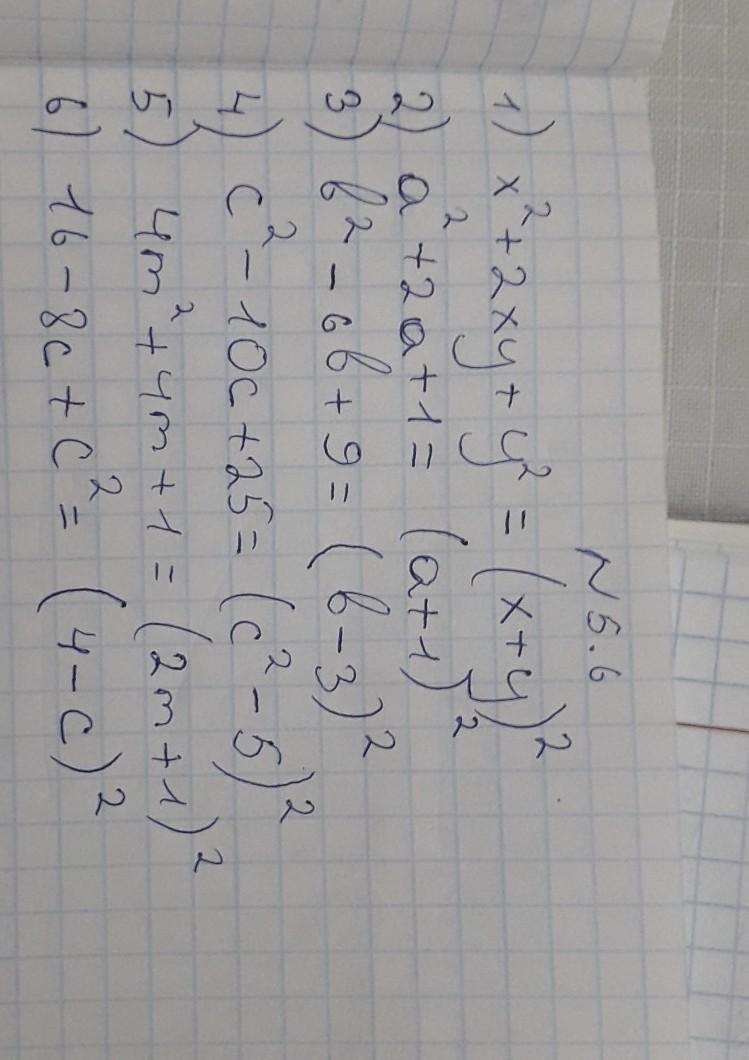 № 5.6
1) x² + 2xy + y² = (x+y)²
2) a² + 2a + 1 = (a+1)²
3) b² - 6b + 9 = (b-3)²
4) c² - 10c + 25 = (c² - 5)²
5) 4m² + 4m + 1 = (2m+1)²
6) 16 - 8c + c² = (4-c)²